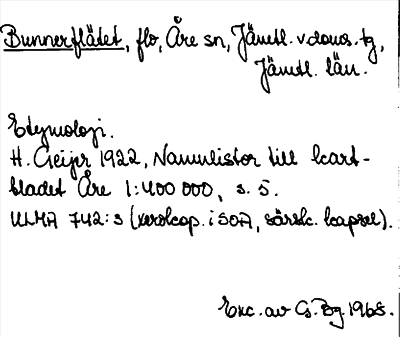 Bunnerflätet, flo, Åre sn, Jämtl. v. doms. tg,
Jämtl. län.
Etymologi.
H. Geijer 1922, Namnlistor till kart-
bladet Åre 1:400 000, s. 5.
ULMA 742:3 (xerokop. i SOA, särsk. kapsel).
Exc. av G. Bg 1968.